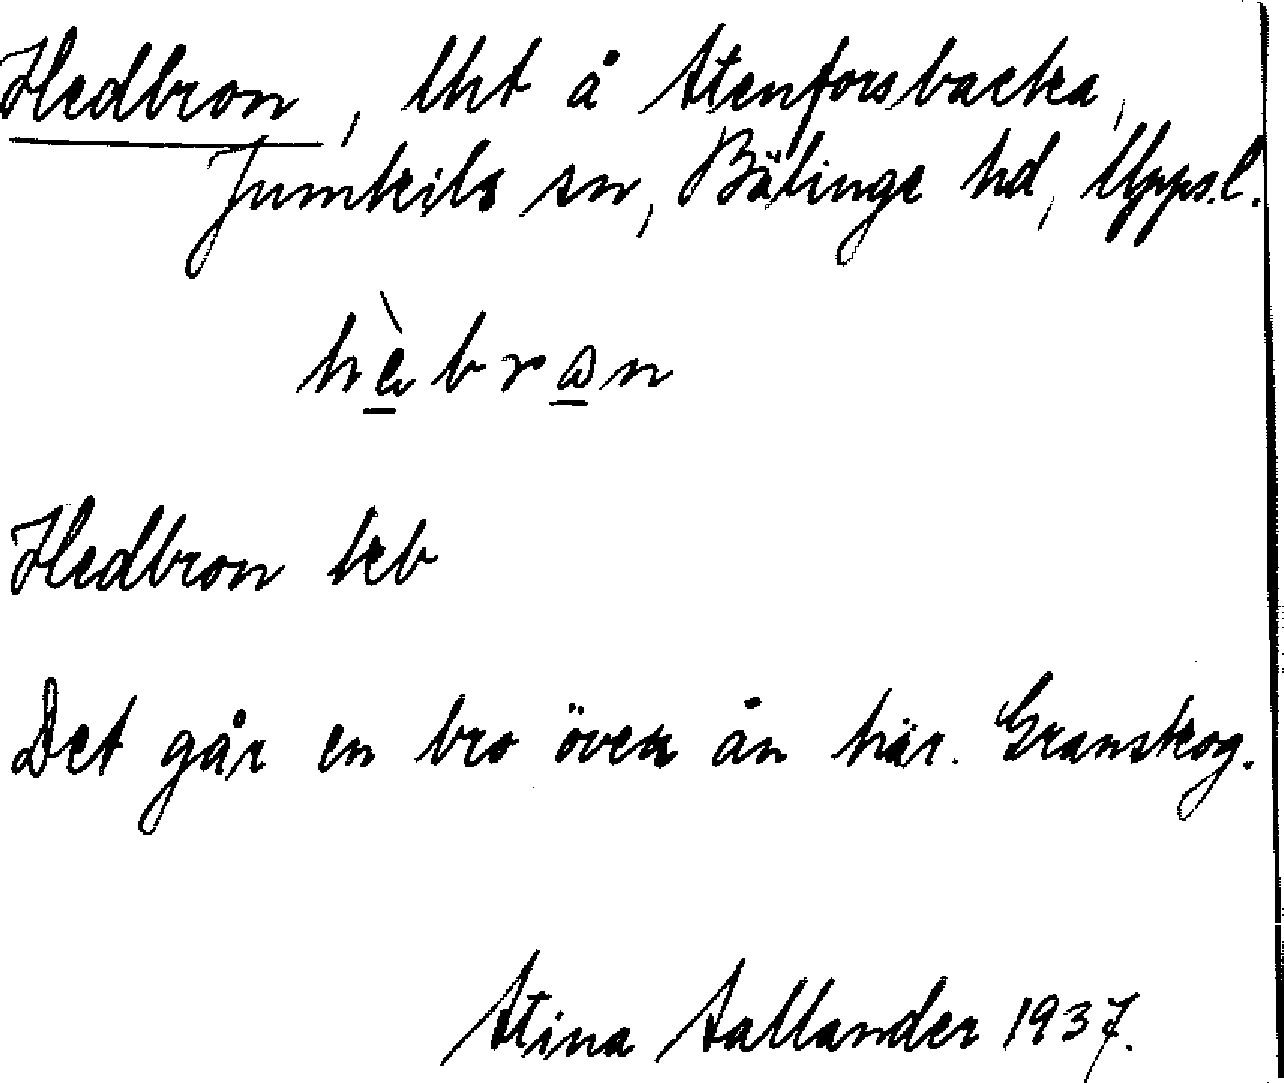 Hedbron, lht å Stenforsbacka,
Jumkils sn, Bälinge hd, Upps.l.
hèbrωn
Hedbron keb
Det går en bro över ån här. Granskog.
Stina Sallander 1937.